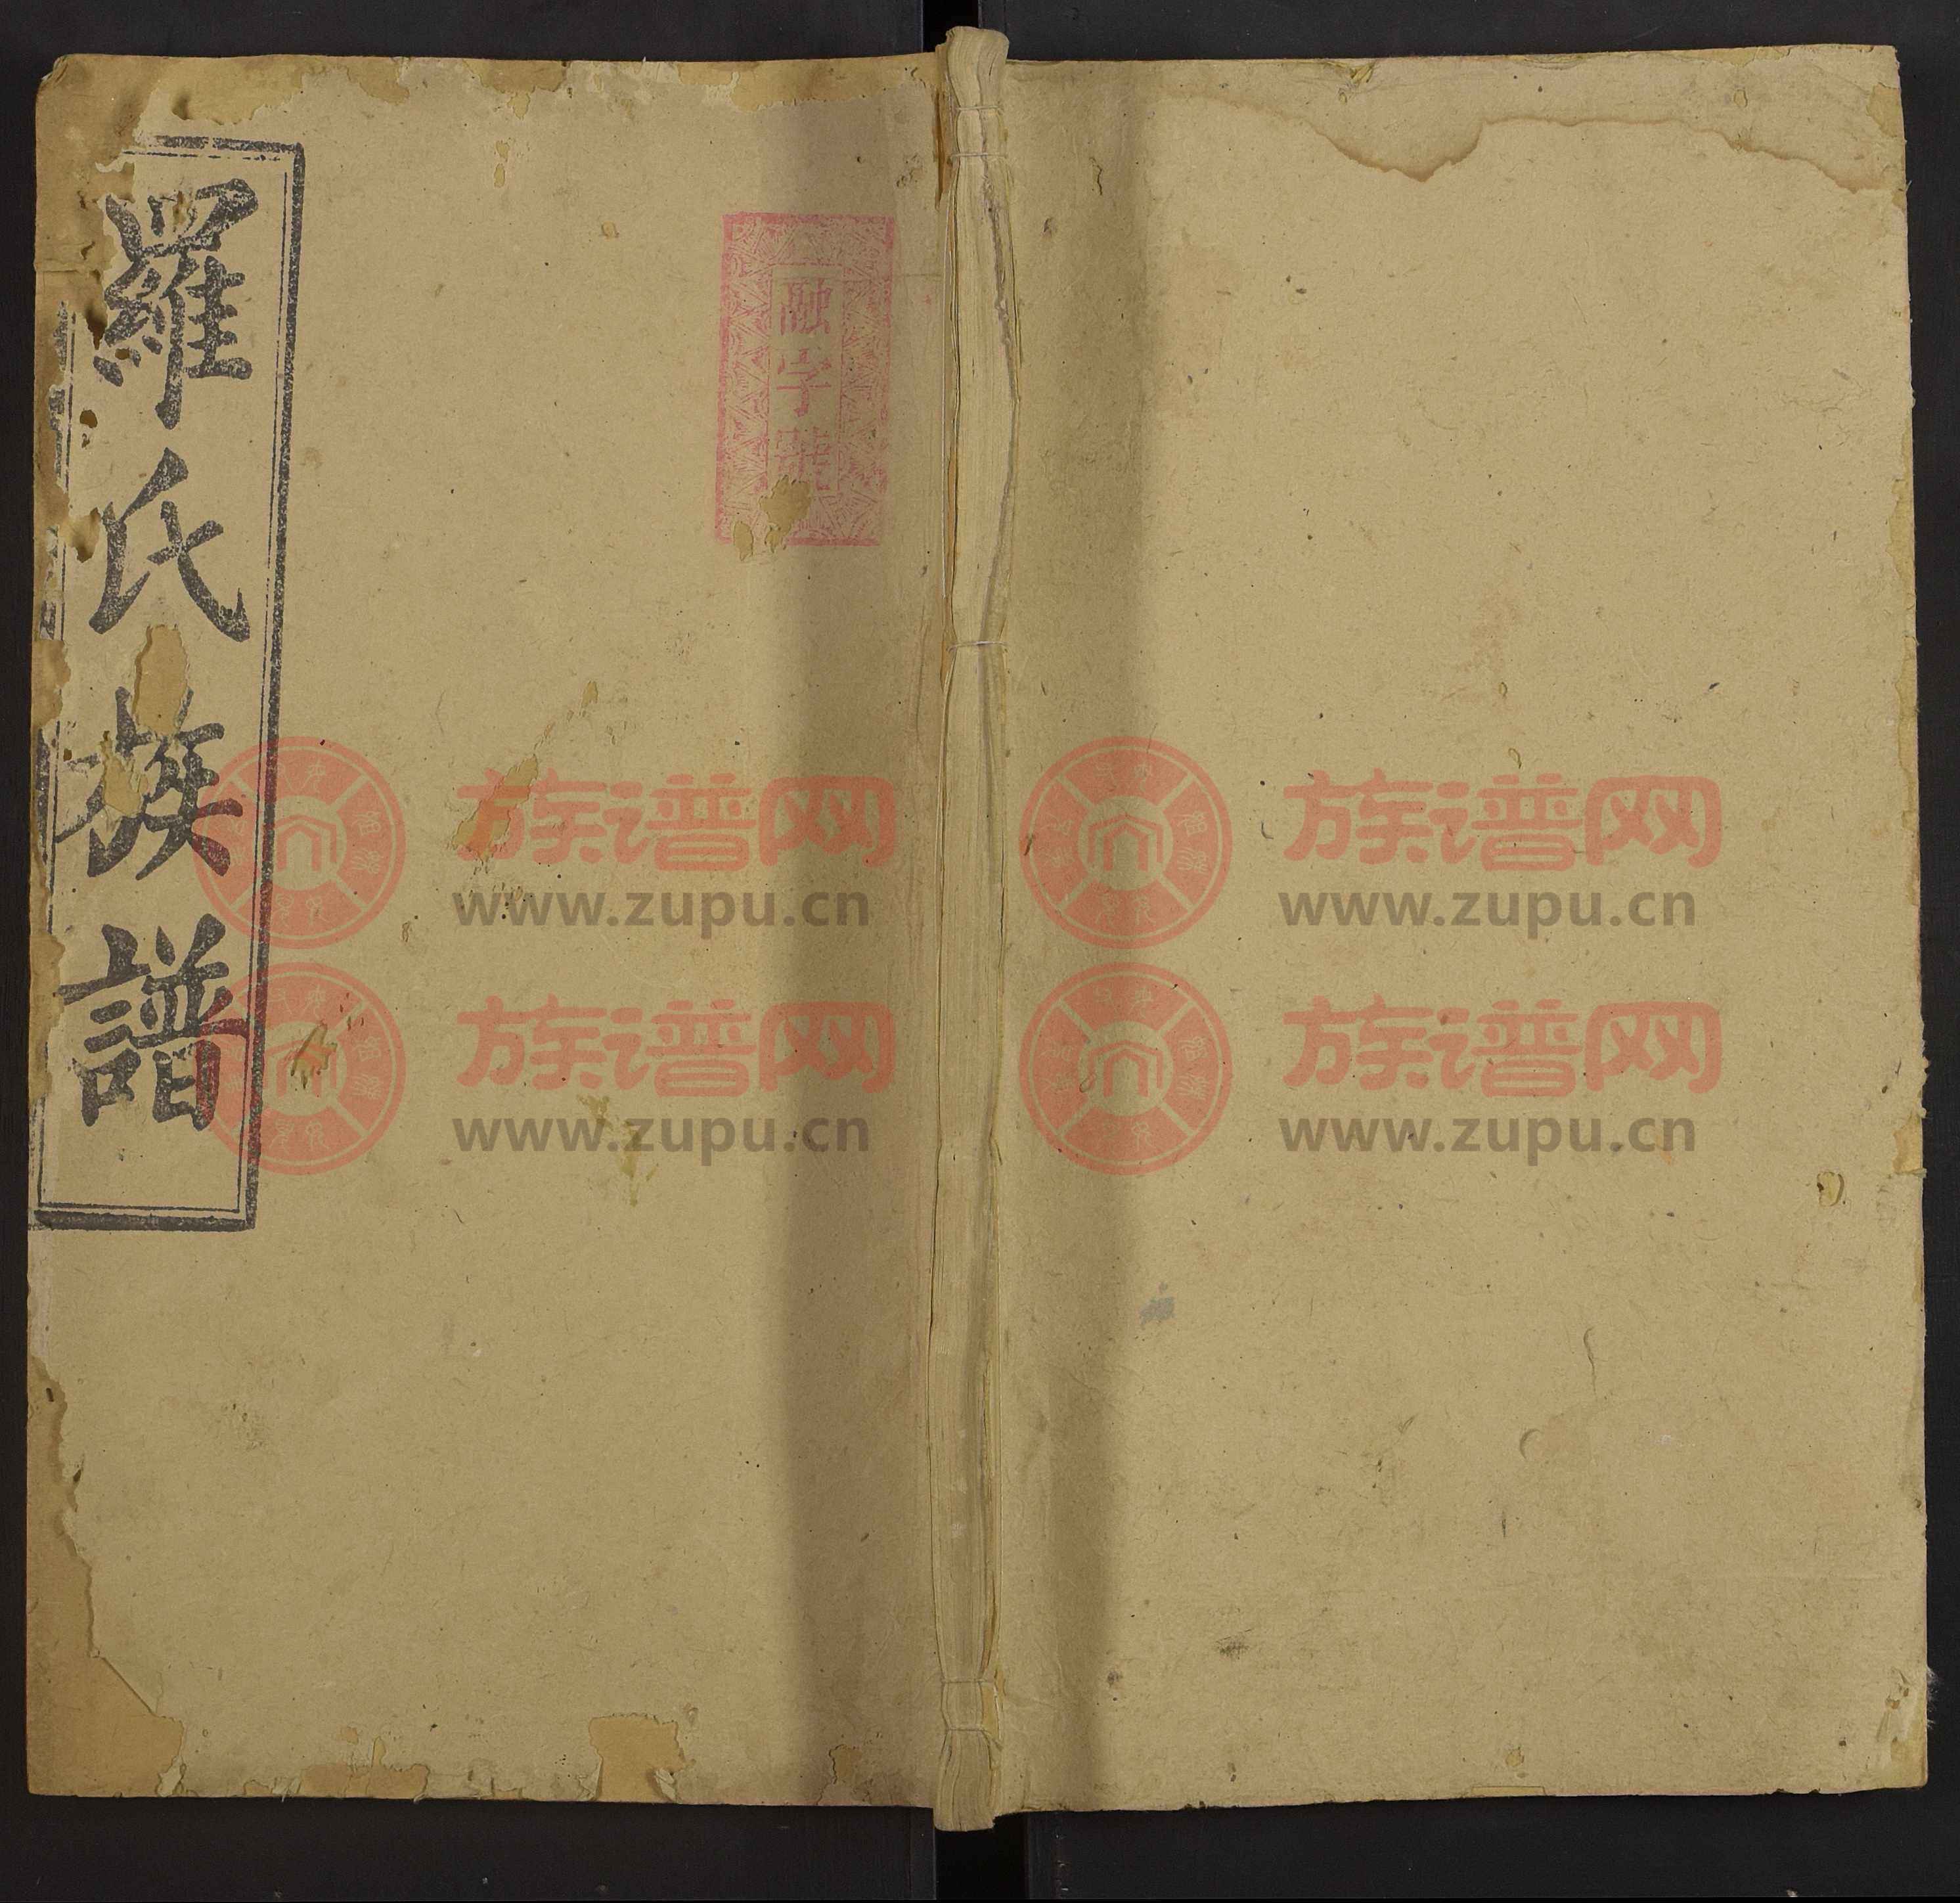 羅氏族譜
融字號
族谱网
www.zupu.cn
族谱网
www.zupu.cn
族谱网
www.zupu.cn
族谱网
www.zupu.cn